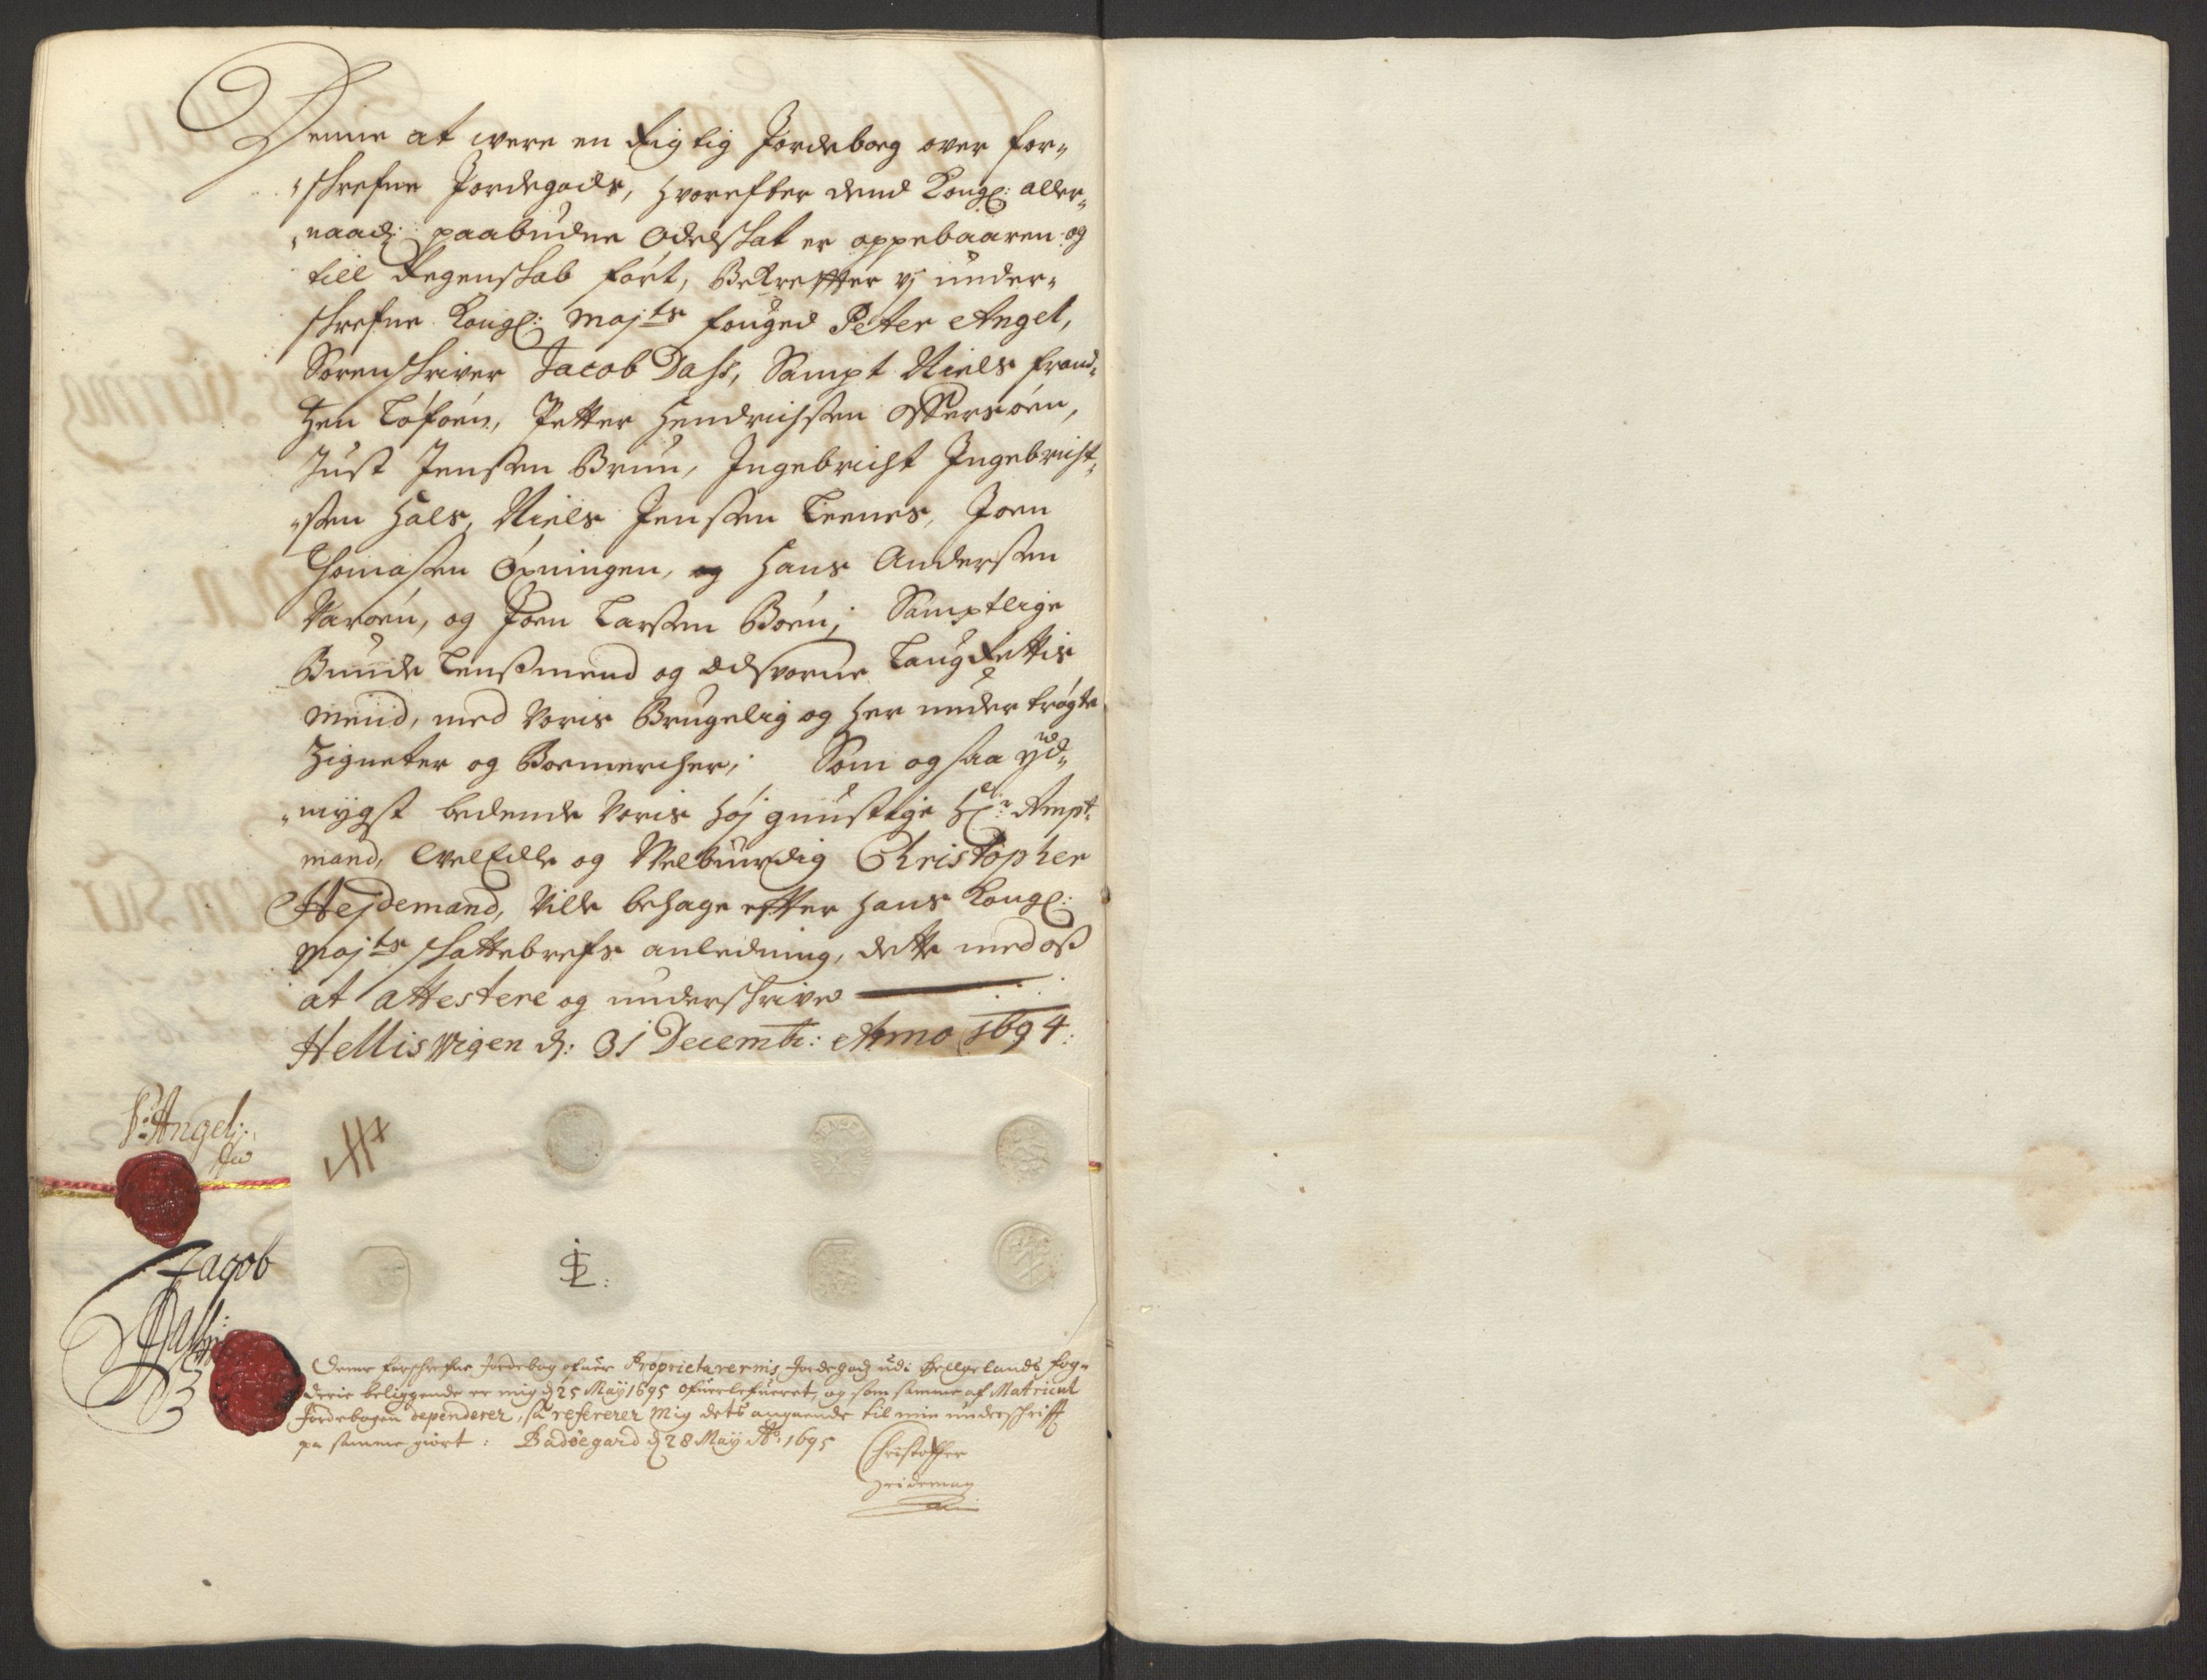 Denne at were en Rigtig Jordebog over for-
skrefne Jordegods, hvorefter dend Kongl: aller-
naad: paabudne Odelskat er oppebaaren og
till Regenskab fört, Bekreffter vj under-
skrefne Kongl: Majts fouged Peter Angel,
Sorenskriver Jacob Dass, Sampt Niels frand-
tzen Töfoen, Petter Hendrichsen
Just Jensen Bruu, Ingebricht Ingebricht-
sen Hals, Niels Jensen Leenes, Joen
Thomasen Öxningen, og Hans Andersen
Varoen, og Joen Larsen Boen; Samptlige
Bunde Lensmend og Edsvorne Laug Rettis
mend, med voris Brugelig og her under trögte
Zigneter og Boemercher; Som og saa yd-
mygst bedende Voris höj gunstige Hr: Ampt-
mand, Welædle og Welbuurdig Christopher
Hejdemand, Wilde behage effter Hans Kongl:
Majts skattebrefs anledning, dette med oss
at attestere og underskrive
Hellis Wigen d: 31 Decembr: Anno 1694:
P: Angel:
Jacob
Dass
IL:
Denne forschrefne Jordebog ofuer Proprietarernis Jordegodz udi Helgelands fog-
derie beliggende er mig d 25 Maij 1695 ofuerlefueret, og som samme af Matricul
Jordebogen dependerer, så refererer Mig dets angaaende til min underschrifft
pa samme giort: Bodöegaard d 28 Maij Ao: 1695
Christoffer
Heideman